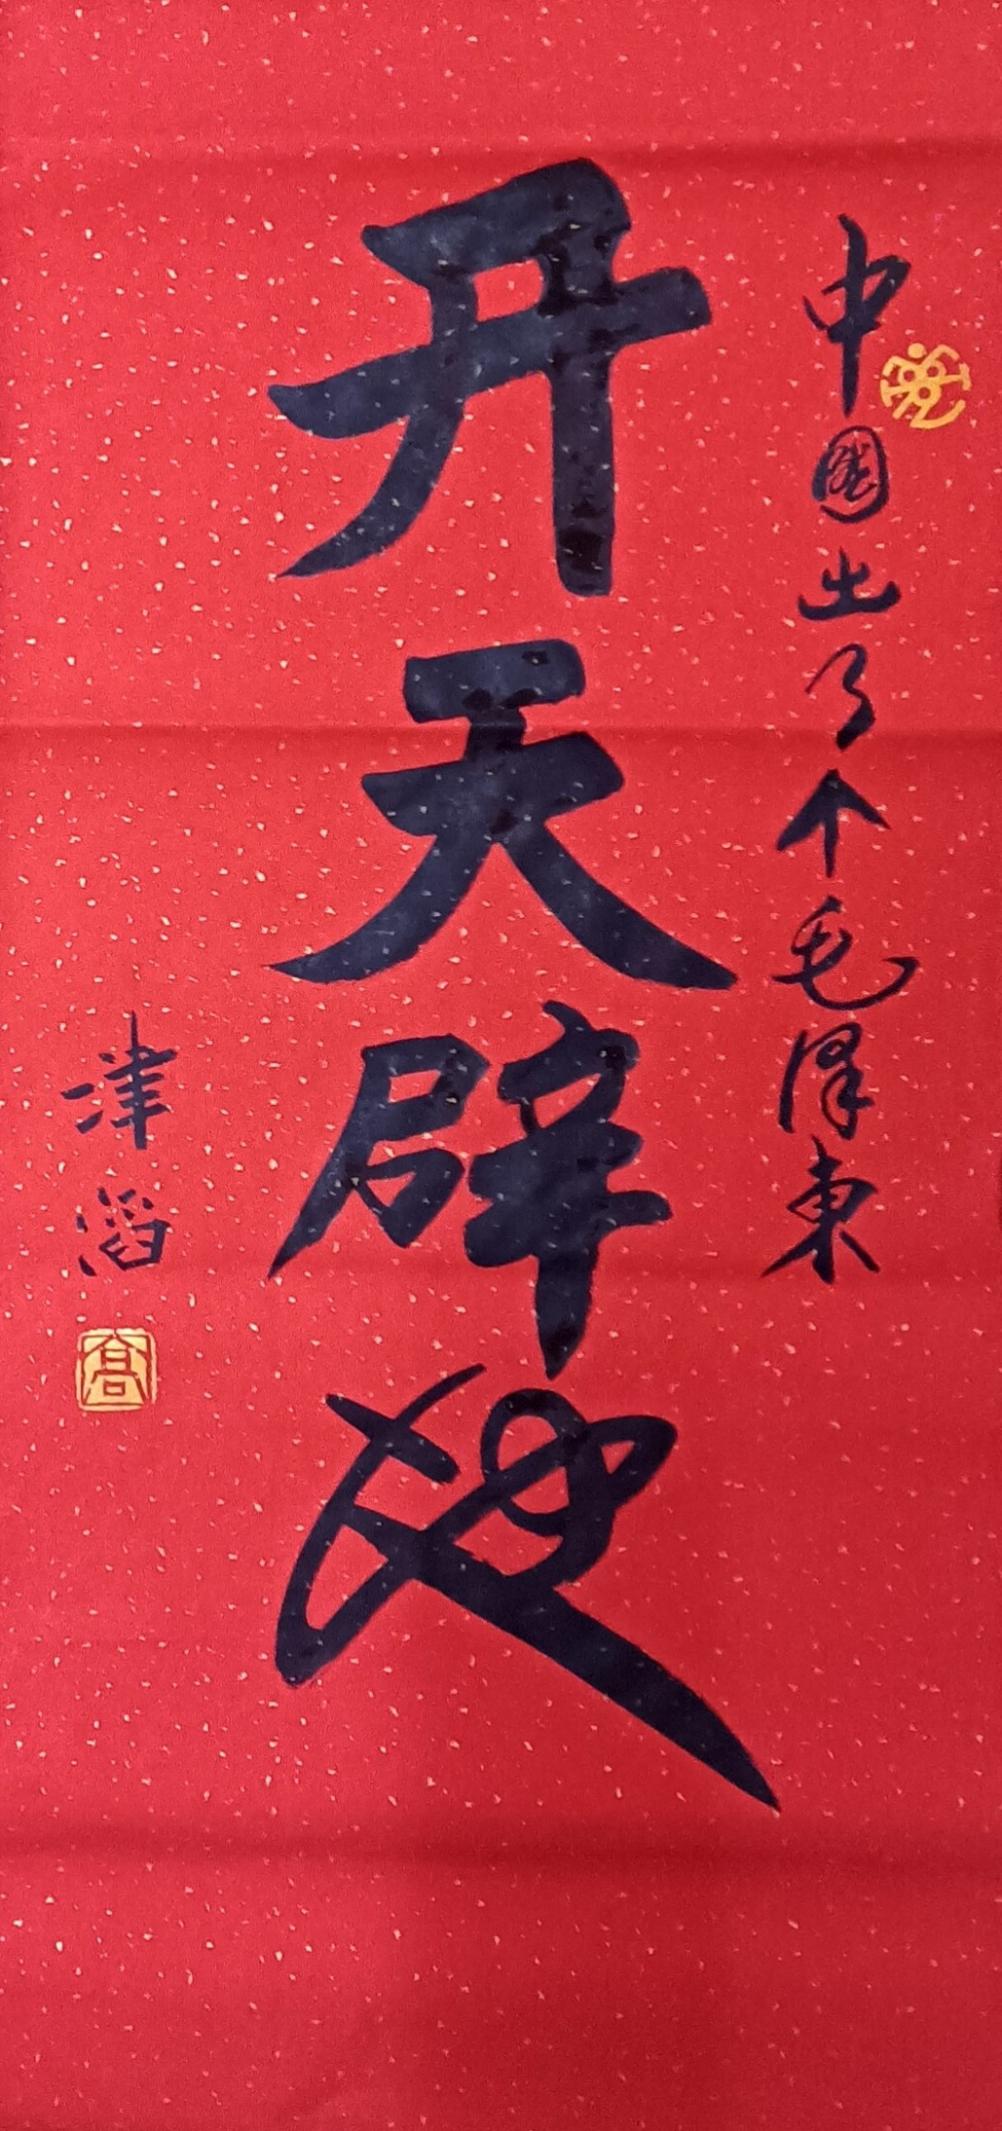 中國出了个毛泽東
开天辟地
津滔
高